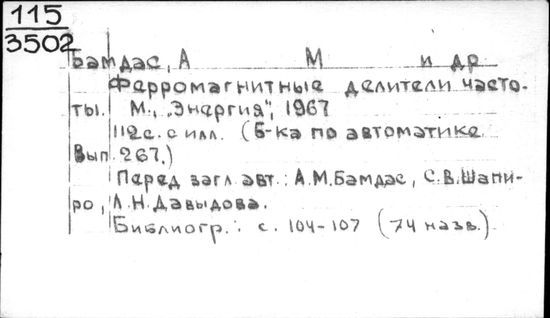 115
3502
Бамдас, А М и др
Ферромагнитные делители часто-
ты. М., „Энергия", 1967
112 с. с илл. (Б-ка по автоматике.
Вып. 267.)
Перед загл. авт.: А.М.Бамдас, С.В.Шапи-
ро, Л.Н.Давыдова.
Библиогр.: с. 104-107 (74 назв.)